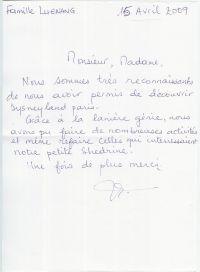 Famille LHENANG
15 Avril 2009
Monsieur, Madame,
Nous sommes très reconnaissants
de nous avoir permis de découvrir
Dysneyland paris.
Grâce à la lanière génie, nous
avons pu faire de nombreuses activités
et même refaire celles qui interessaient
notre petite Shedrine.
Une fois de plus merci.